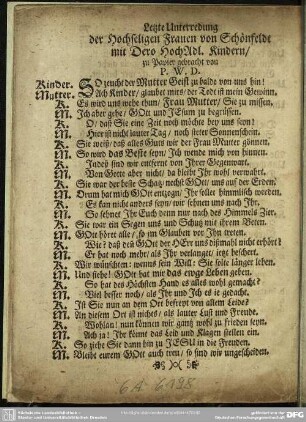 Letzte Unterredung
der Hochseligen Frauen von Schönfeldt
mit Dero HochAdl. Kindern/
zu Papier gebracht von
P. W. D.
Kinder. SO zeucht der Mutter Geist zu balde von uns hin!
Mutter. Ach Kinder/ glaubet mirs/ der Tod ist mein Gewinn.
K. Es wird uns wehe thun/ Frau Mutter/ Sie zu missen.
M. Ich aber gehe/ GOtt und JEsum zu begrüssen.
K. O/ daß Sie eine Zeit noch möchte bey uns seyn!
M. Hier ist nicht lauter Tag/ noch steter Sonnenschein.
K. Sie weiß/ daß alles Guts wir der Frau Mutter gönnen.
M. So wird das Beste seyn/ Ich wende mich von hinnen.
K. Indeß sind wir entfernt von Ihrer Gegenwart.
M. Von Gotte aber nicht/ da bleibt Ihr wohl verwahrt.
K. Sie war der beste Schatz/ nechst GOtt/ uns auf der Erden.
M. Drum hat mich GOtt entzogn/ Ihr sollet himmlisch werden.
K. Es kan nicht anders seyn/ wir sehnen uns nach Ihr.
M. So sehnet Ihr Euch denn nur nach des Himmels Zier.
K. Sie war ein Segen uns und Schutz mit ihrem Beten.
M. GOtt höret alle/ so im Glauben vor Ihn treten.
K. Wie? daß euch GOtt der HErr uns dißmahl nicht erhört?
M. Er hat noch mehr/ als Ihr verlanget/ jetzt beschert.
K. Wir wünschten/ wenns sein Will: Sie solte länger leben.
M. Und siehe! GOtt hat mir das ewge Leben geben.
K. So hat des Höchsten Hand es alles wohl gemacht?
M. Viel besser noch/ als Ihr und Ich es je gedacht.
K. Ist Sie nun an dem Ort befreyt von allem Leide?
M. An diesem Ort ist nichts/ als lauter Lust und Freude.
K. Wohlan! nun können wir gantz wohl zu frieden seyn.
M. Ach ja! Ihr könnt das Leid und Klagen stellen ein.
K. So ziehe Sie dann hin zu JESU in die Freuden.
M. Bleibt eurem GOtt auch treu/ so sind wir ungescheiden.